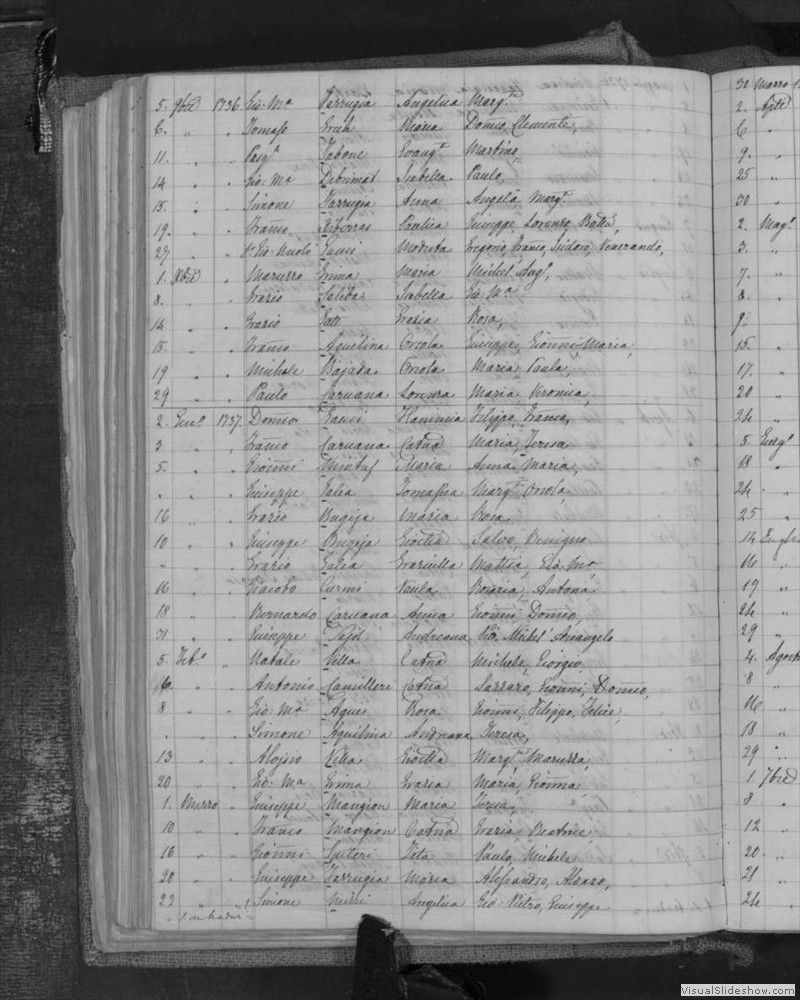 5. 9bre 1736 Gio: Mª Farrugia Angelica Marg.
6. " " Tomaso Grech Maria Domco, Clemente,
11. " " Tabone Evangta Martino,
14 " " Gio: Mª Isabella Paulo,
15. " " Simone Farrugia Anna Angela Margta
19. " " Franco Paulica Giuseppe, Lorenzo, Batta,
27. " " Gio: Nicolò Gauci Modesta Gregorio, Franco, Isidoro, Venerando,
1. Xbre " Maruzzo Grima Maria Michel' Angº,
8. " " Grazio Saliba Isabella Gio: Mª
14 " " Grazio Grazia Rosa,
15. " " Franco Aquilina Orsola Giuseppe, Gionni Maria,
19 " " Michele Bajada Orsola Maria, Paula,
29 " " Paulo Caruana Lorenza Maria, Veronica,
2. Genº 1737. Domco Gauci Flaminia Filippo, Franco,
3 " " Franco Caruana Catna Maria, Teresa
5. " " Gionni Mintuf Maria Anna Maria,
" " " Giuseppe Galea Tomasica Margta Orsola,
16 " " Grazio Bugeja Maria Rosa
10 " " Giuseppe Bugeja Salvo, Benigno,
" " " Grazio Galea Graziella Mattia, Gio: Mª,
16 " " Giacobo Curmi Paula Rosaria, Antona
18 " " Bernardo Caruana Anna Gionni Domco,
31 " " Giuseppe Andreana Michel' Arcangelo
5. Febº " Natale Vella Catna Michele, Giorgio,
" " Antonio Camilleri Catna Lazzaro, Gionni, Domco,
8 " " Gio: Mª Agius Rosa Gionni, Filippo, Felice,
" " " Simone Aquilina Andreana Teresa,
13 " " Aloisio Vella Margta Maruzza,
20 " " Gio: Mª Grima Grazia Maria, Gionna
1. Marzo " Giuseppe Mangion Maria Teresa,
10 " " Franco Mangion Catna Grazia Beatrice,
16 " " Gionni Spiteri Vita Paulo, Michele
20 " " Giuseppe Farrugia Maria Alessandro, Alonzo,
22 " " Simone Angelica Gio: Pietro, Giuseppe
30 Marzo
2. Aple
6 "
9. "
25 "
30 "
2. Magº
3. "
7. "
8. "
9. "
15. "
17. "
20 "
24 "
5. Giugº
18 "
24 "
25 "
14
16 "
19 "
24 "
29 "
4. Agosto
8 "
16 "
18 "
29 "
1. 7bre
8 "
12 "
20 "
21 "
24 "
VisualSlideshow.com